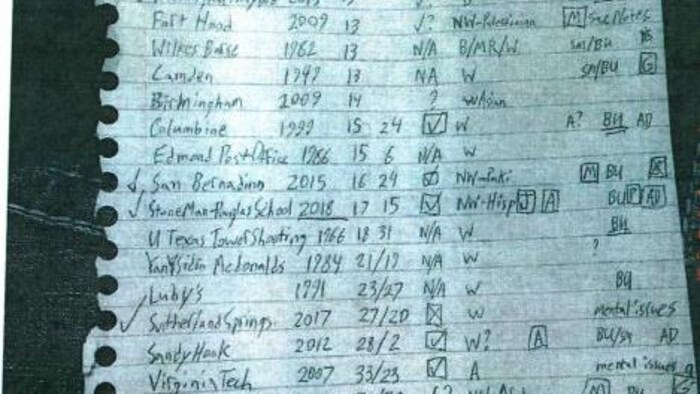 Fort Hood 2009 13 ✓? NW-Palestinian M See Notes
Wilkes Barre 1982 13 N/A B/MR/W SM/BU
Camden 1949 13 NA W SM/BU G
Birmingham 2009 14 ? W Asian
Columbine 1999 15 24 ☑ W A? BU AD
Edmond Post Office 1986 15 6 N/A W
✓ San Bernadino 2015 16 24 ☑ NW-Paki M BU
✓ StoneMan Douglas School 2018 17 15 ☑ NW-Hisp J A BU P AD
U Texas Tower Shooting 1966 18 31 N/A W BU
Mcdonalds 1984 21/19 N/A W ?
Luby's 1991 23/27 N/A W BU
✓ Sutherland Springs 2017 27/20 ☒ W mental issues
Sandy Hook 2012 28/2 ☑ W? A BU/SM AD
Virginia Tech 2007 33/23 ☑ A mental issues
M BU G